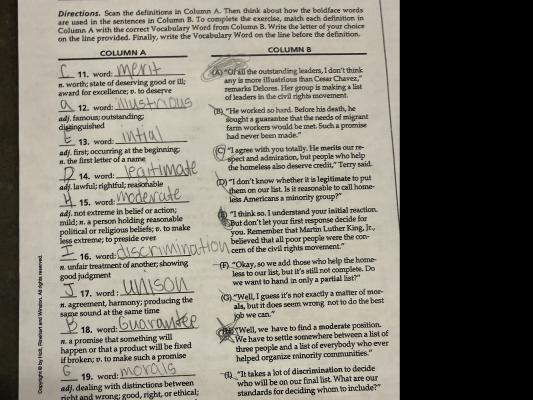 Directions. Scan the definitions in Column A. Then think about how the boldface words
are used in the sentences in Column B. To complete the exercise, match each definition in
Column A with the correct Vocabulary Word from Column B. Write the letter of your choice
on the line provided. Finally, write the Vocabulary Word on the line before the definition.
COLUMN A
C 11. word: merit
n. worth; state of deserving good or ill;
award for excellence; v. to deserve
a 12. word: illustrious
adj. famous; outstanding;
distinguished
E 13. word: intial
adj. first; occurring at the beginning;
n. the first letter of a name
D 14. word: legitimate
adj. lawful; rightful; reasonable
H 15. word: moderate
adj. not extreme in belief or action;
mild; n. a person holding reasonable
political or religious beliefs; v. to make
less extreme; to preside over
I 16. word: discrimination
n. unfair treatment of another; showing
good judgment
J 17. word: unison
n. agreement, harmony; producing the
same sound at the same time
B 18. word: Guarantee
n. a promise that something will
happen or that a product will be fixed
if broken; v. to make such a promise
G 19. word: morals
adj. dealing with distinctions between
right and wrong; good, right, or ethical;
COLUMN B
(A) "Of all the outstanding leaders, I don't think
any is more illustrious than Cesar Chavez,"
remarks Delores. Her group is making a list
of leaders in the civil rights movement.
(B) "He worked so hard. Before his death, he
sought a guarantee that the needs of migrant
farm workers would be met. Such a promise
had never been made."
(C) "I agree with you totally. He merits our re-
spect and admiration, but people who help
the homeless also deserve credit," Terry said.
(D) "I don't know whether it is legitimate to put
them on our list. Is it reasonable to call home-
less Americans a minority group?"
"I think so. I understand your initial reaction.
But don't let your first response decide for
you. Remember that Martin Luther King, Jr.,
believed that all poor people were the con-
cern of the civil rights movement."
(F) "Okay, so we add those who help the home-
less to our list, but it's still not complete. Do
we want to hand in only a partial list?"
(G) "Well, I guess it's not exactly a matter of mor-
als, but it does seem wrong not to do the best
job we can."
"Well, we have to find a moderate position.
We have to settle somewhere between a list of
three people and a list of everybody who ever
helped organize minority communities."
(I) "It takes a lot of discrimination to decide
who will be on our final list. What are our
standards for deciding whom to include?"
Copyright © by Holt, Rinehart and Winston. All rights reserved.